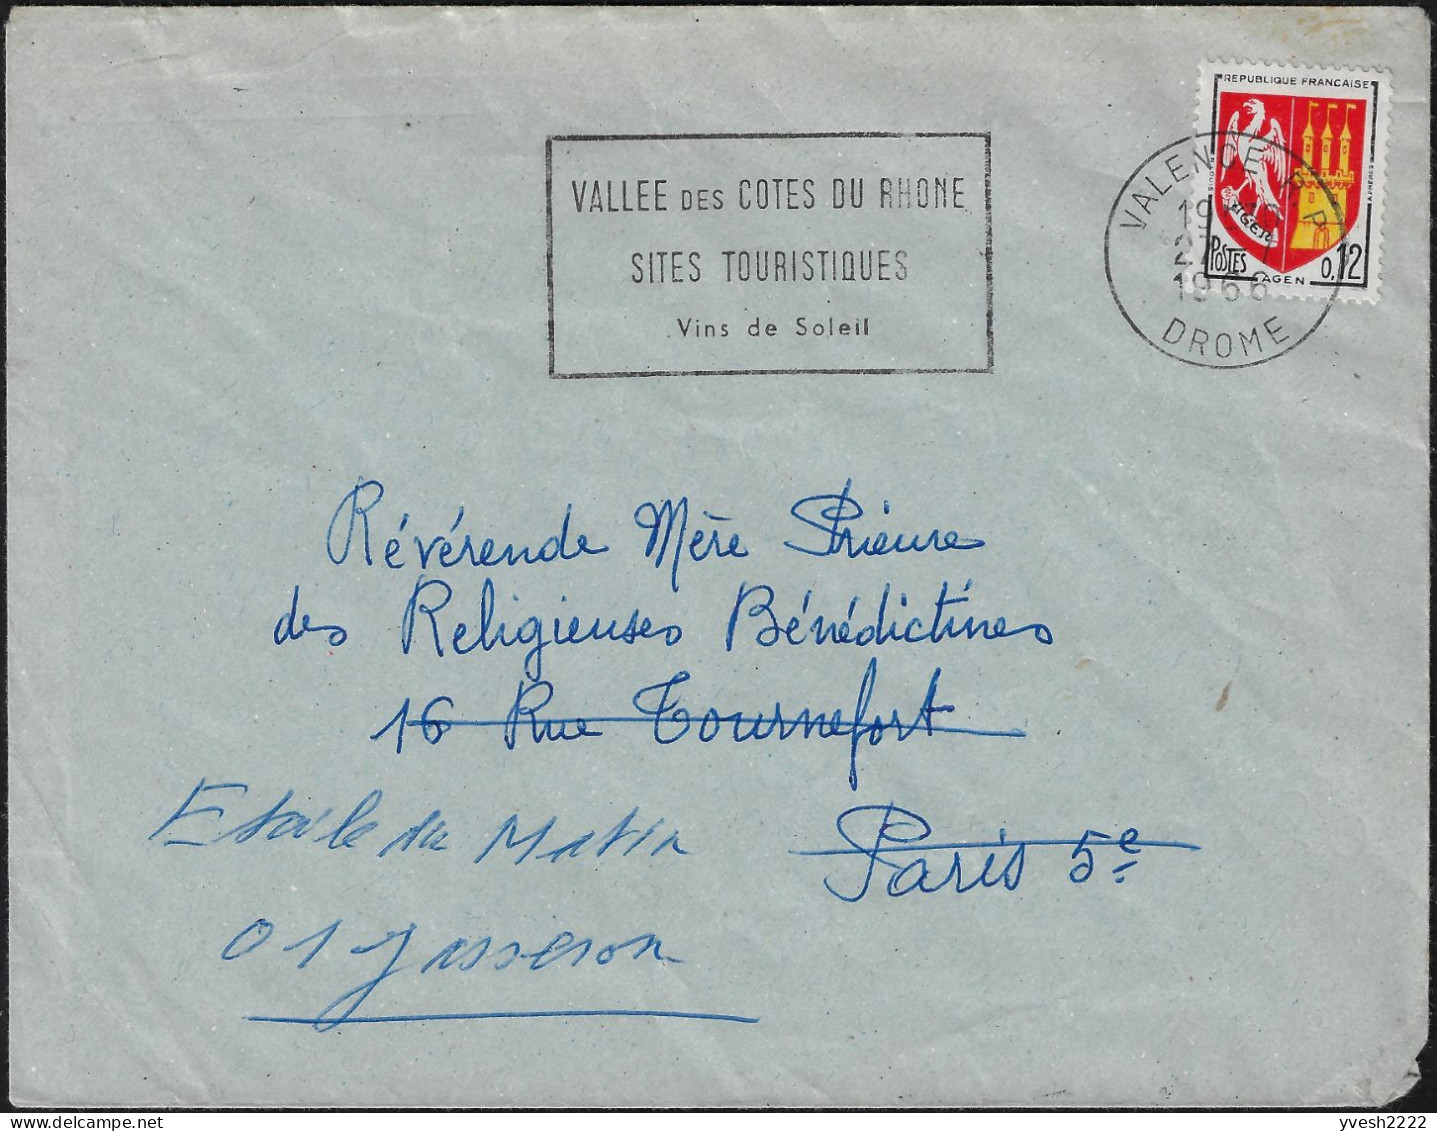 REPUBLIQUE FRANCAISE
VALLEE DES COTES DU RHONE
SITES TOURISTIQUES
Vins de Soleil
VALENCE R.P.
1966
DROME
AGEN
POSTES
0,12
AGEN
Révérende Mère Prieure
des Religieuses Bénédictines
16 Rue Tournefort
Paris 5e
Etoile du Matin
01 Jasseron
yvesh2222